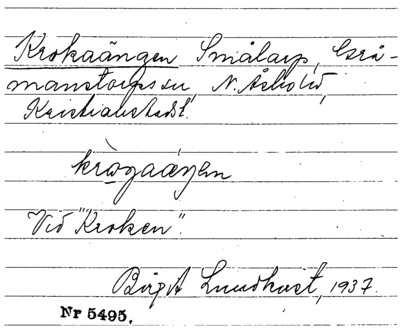 Krokaängen Smålarp, Grå-
manstorps sn, N. Åsbo hd,
Kristianstads l.
krogaäŋen
Vid "Kroken".
Birgit Lundkvist, 1937.
Nr 5495.